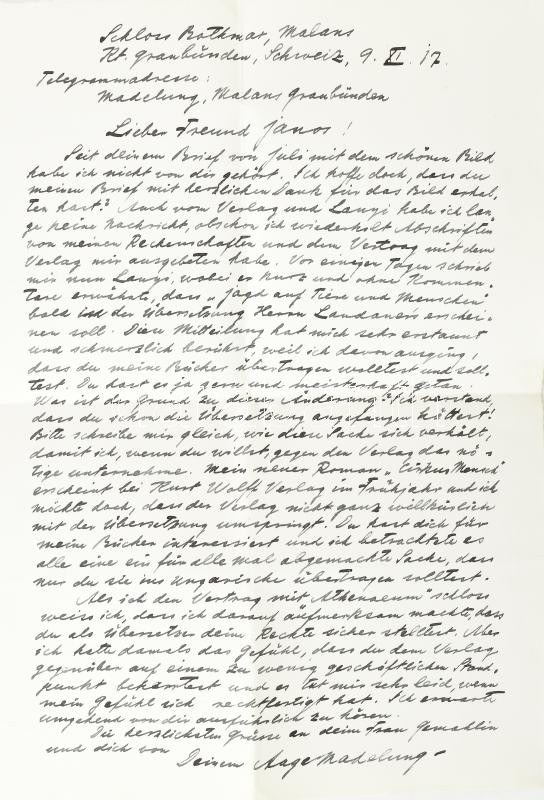 Schloss Bothmar, Malans
Kt. Graubünden, Schweiz, 9. XI. 17.
Telegrammadresse:
Madelung, Malans Graubünden
Lieber Freund Janos!
Seit deinem Brief von Juli mit dem schönen Bild
habe ich nicht von dir gehört. Ich hoffe doch, dass du
meinen Brief mit herzlichen Dank für das Bild erhal-
ten hast? Auch vom Verlag und Lanyi habe ich lan-
ge keine Nachricht, obschon ich wiederholt Abschriften
von meinen Rechenschaften und dem Vertrag mit dem
Verlag mir ausgebeten habe. Vor einigen Tagen schrieb
mir nun Lanyi, wobei er kurz und ohne Kommen-
tare erwähnte, dass "Jagd auf Tiere und Menschen"
bald in der Übersetzung Herrn Landauers erschei-
nen soll. Diese Mitteilung hat mich sehr erstaunt
und schmerzlich berührt, weil ich davon ausging,
dass du meine Bücher übertragen wolltest und soll-
test. Du hast es ja gern und meisterhaft getan.
Was ist der Grund zu dieser Änderung? Ich verstand,
dass du schon die Übersetzung angefangen hättest!
Bitte schreibe mir gleich, wie diese Sache sich verhält,
damit ich, wenn du willst, gegen den Verlag das nö-
tige unternehme. Mein neuer Roman "Cirkus Mensch"
erscheint bei Kurt Wolff Verlag im Frühjahr und ich
möchte doch, dass der Verlag nicht ganz willkürlich
mit der Übersetzung umspringt. Du hast dich für
meine Bücher interessiert und ich betrachtete es
als eine ein für alle mal abgemachte Sache, dass
nur du sie ins Ungarische übertragen solltest.
Als ich den Vertrag mit "Athenaeum" schloss
weiss ich, dass ich darauf aufmerksam machte, dass
du als Übersetzer deine Rechte sicher stelltest. Aber
ich hatte damals das Gefühl, dass du dem Verlag
gegenüber auf einem zu wenig geschäftlichen Stand-
punkt beharrtest und es tut mir sehr leid, wenn
mein Gefühl sich rechtfertigt hat. Ich erwarte
umgehend von dir ausführlich zu hören.
Die herzlichsten Grüsse an deine Frau Gemahlin
und dich von
Deinem Aage Madelung